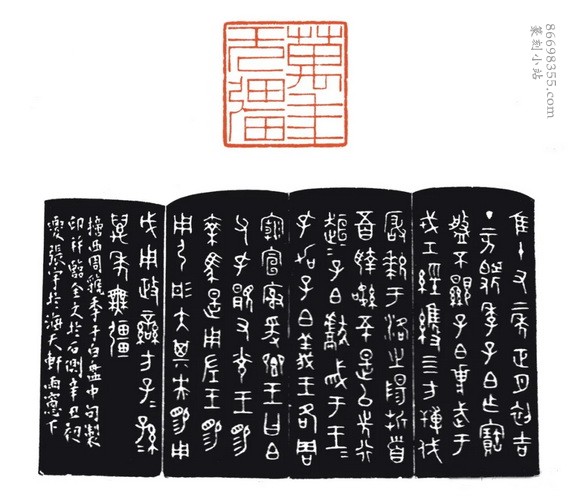 萬年
无疆
86698355.com
篆刻小站
隹十又二年正月初吉
丁亥虢季子白乍寶
盤不顯子白庸武于
戎工經維四方搏伐
玁狁于洛之陽折首
五百執訊五十是以先行
桓〻子白獻馘于王〻
孔加子白義王各周
廟宣榭爰鄉王曰白
父孔顯又光王賜
乘馬是用左王賜
用弓彤矢其央賜用
戉用政蠻方子〻孫〻
萬年無疆
摘西周虢季子白盤中句製
印並臨金文於石側辛丑初
夏張宇於海天軒雨窗下